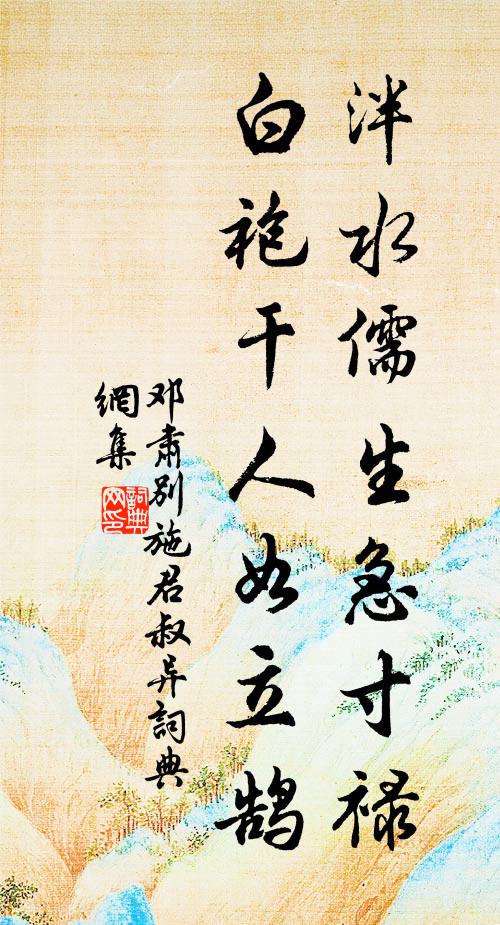 泮水儒生急寸禄
白袍干人如立鹄
邓肃别施君叔异詞典
網集
詞典
网印